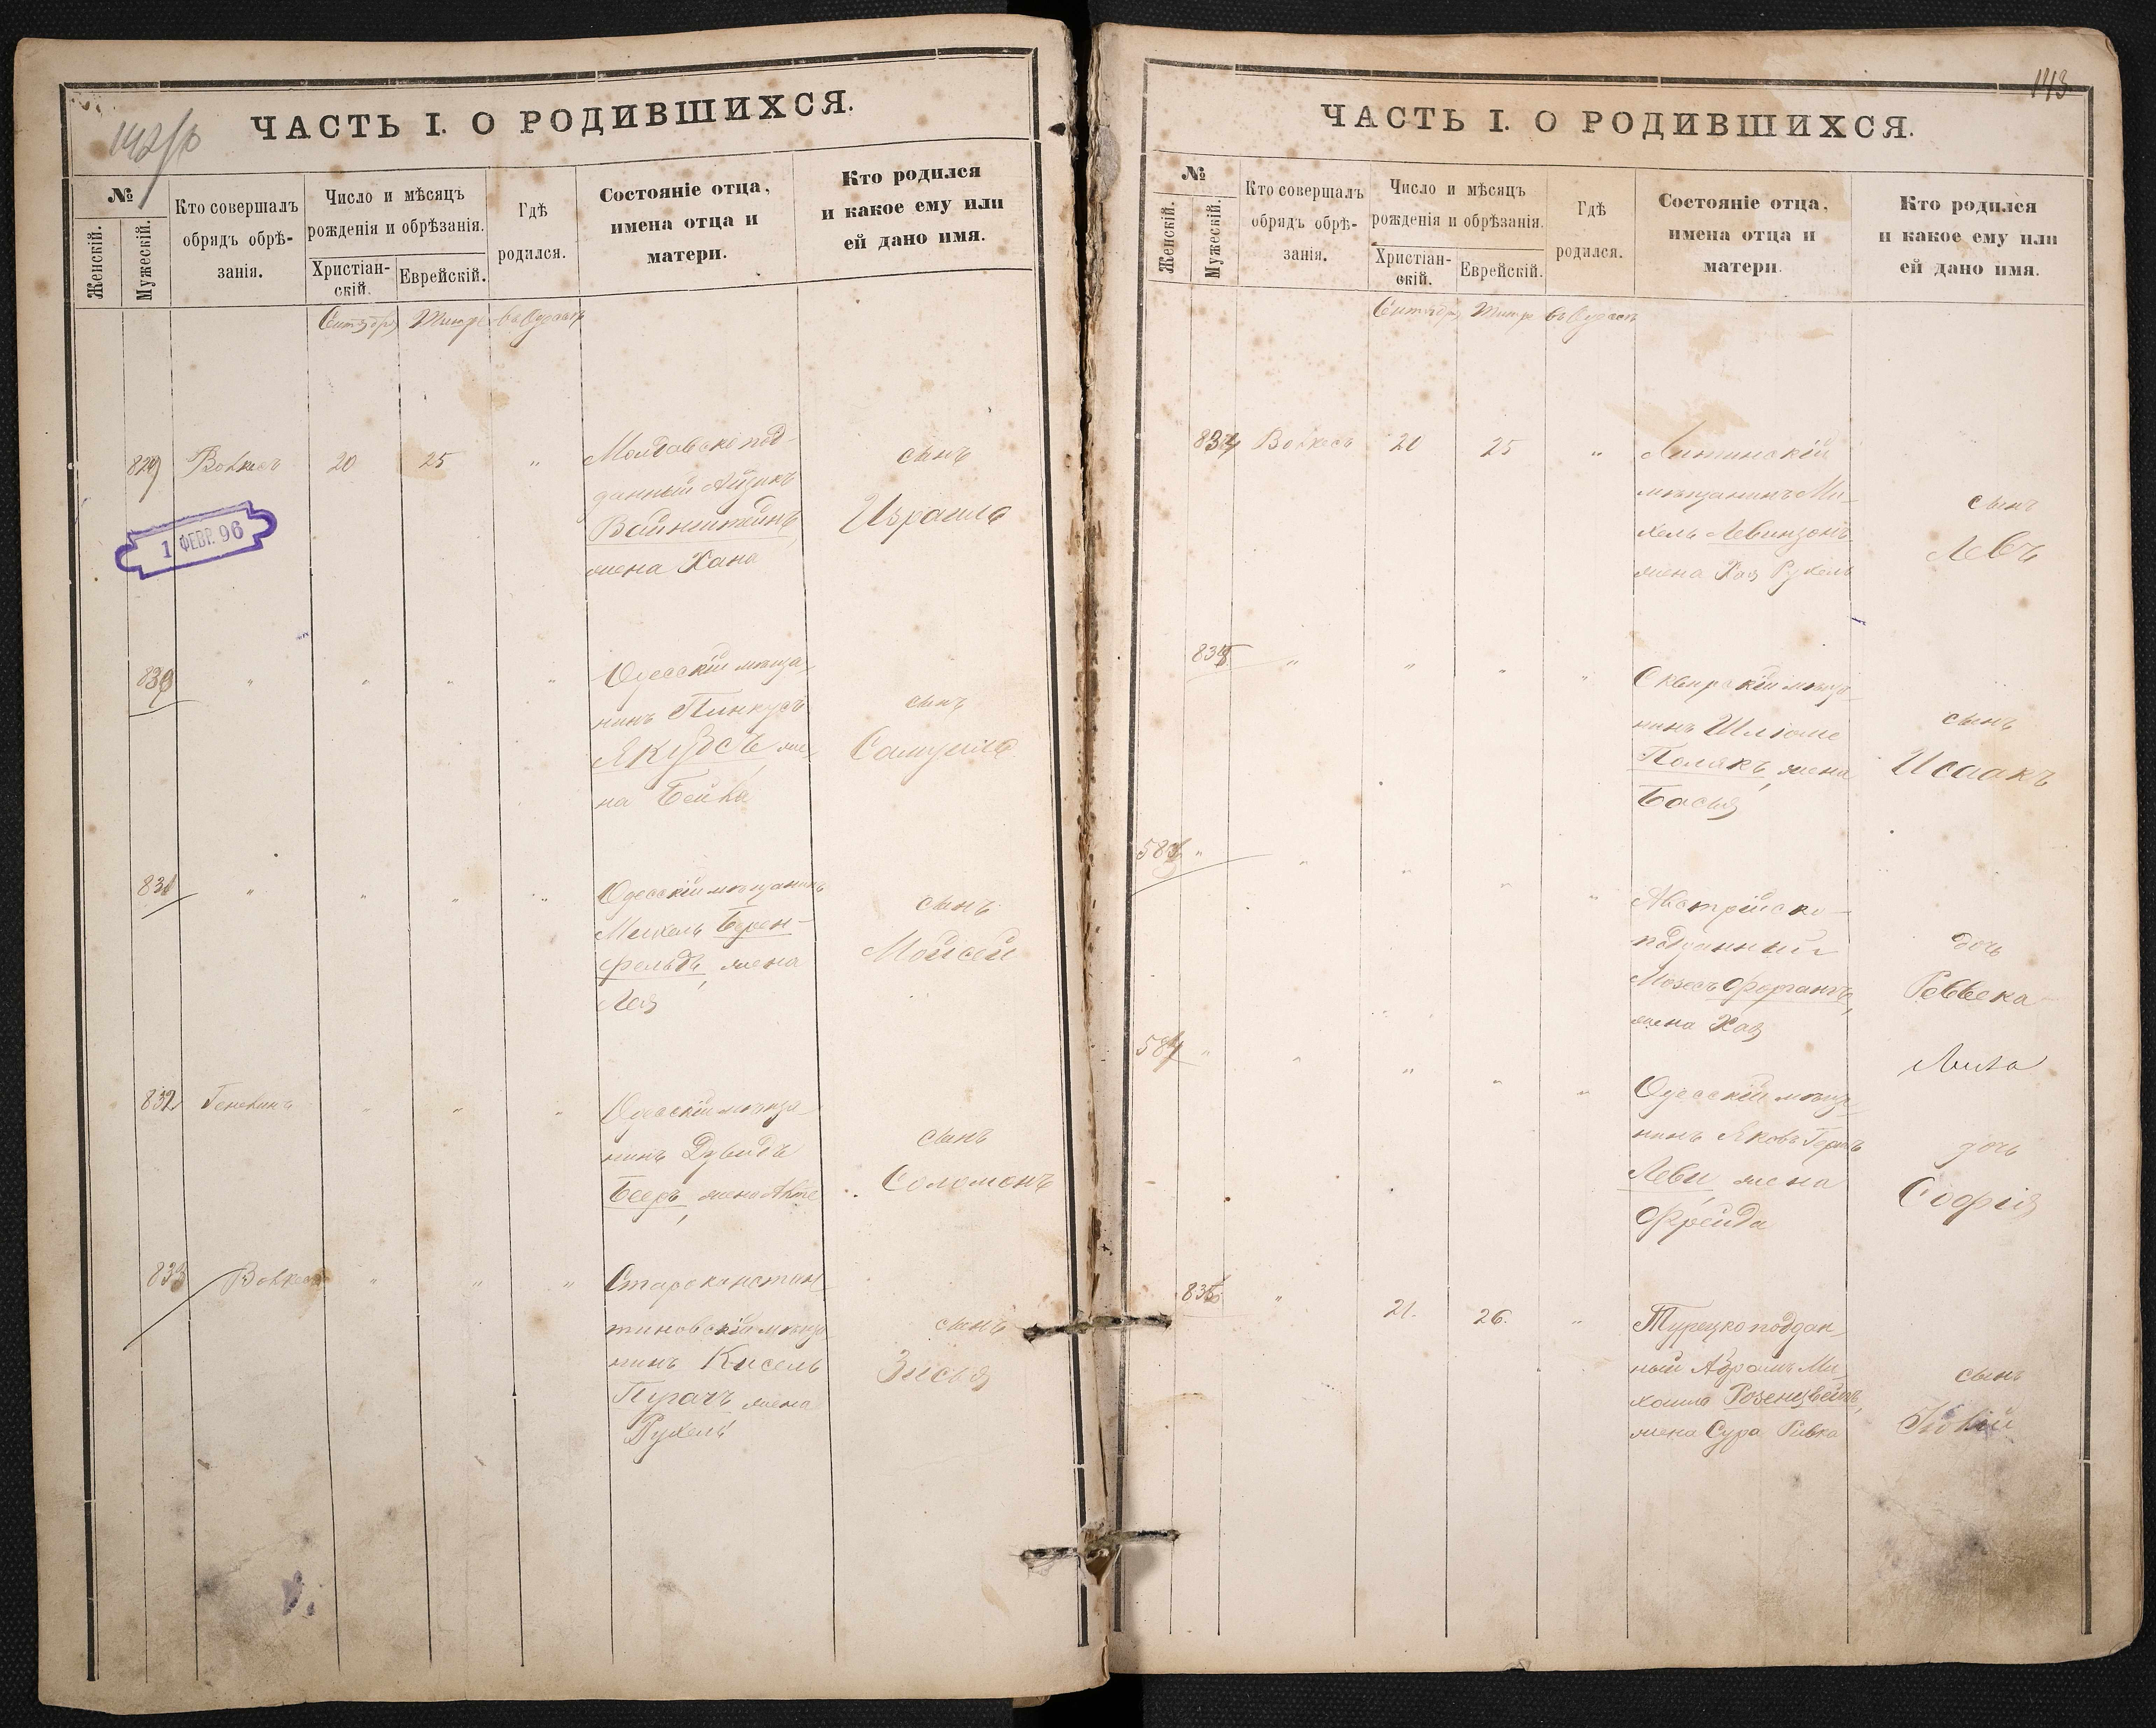 142/об
ЧАСТЬ I. О РОДИВШИХСЯ.
№
Женскій.
Мужескій.
Кто совершалъ
обрядъ обрѣ-
занія.
Число и мѣсяцъ
рожденія и обрѣзанія.
Христіан-
скій.
Еврейскій.
Гдѣ
родился.
Состояніе отца,
имена отца и
матери.
Кто родился
и какое ему или
ей дано имя.
Сентябр Тишри въ Одессѣ
829 20 25 „ Молдавскопод-
данный Айзикъ
Вайнштейнъ,
жена Хана
сынъ
Израиль
1 ФЕВР. 96
830 „ „ „ „ Одесскій мѣща-
нинъ Пинкусъ
же-
на Бейла
сынъ
Самуилъ
831 „ „ „ „ Одесскій мѣщанинъ
Берен-
фельдъ, жена
Лея
сынъ
Мойсей
832 „ „ „ Одесскій мѣща-
нинъ Дувидъ
Бееръ, жена
сынъ
Соломонъ
833 „ „ „ Староконстан-
тиновскій мѣща-
нинъ Кисель
Пугачъ жена
Рухель
сынъ
Зисья
143
ЧАСТЬ I. О РОДИВШИХСЯ.
№
Женскій.
Мужескій.
Кто совершалъ
обрядъ обрѣ-
занія.
Число и мѣсяцъ
рожденія и обрѣзанія.
Христіан-
скій.
Еврейскій.
Гдѣ
родился.
Состояніе отца,
имена отца и
матери.
Кто родился
и какое ему или
ей дано имя.
Сентябр Тишри въ Одессѣ
834 20 25 „ Литинскій
мѣщанинъ Ми-
хель Левинзонъ
жена Рухель
сынъ
Левъ
835 „ „ „ „ Сквирскій мѣща-
нинъ Шлюме
Полякъ, жена
Бася
сынъ
Исаакъ
583 „ „ „ „ „ Австрійско-
подданный
Мозесъ
жена Хая
дочь
Реввека
584 „ „ „ „ „ Одесскій мѣща-
нинъ Яковъ
Леви, жена
Фрейда
дочь
Софія
836 „ 21. 26. „ Турецкоподдан-
ный Абрамъ Ми-
хаилъ Розенцвейгъ,
жена Сура Ривка
сынъ